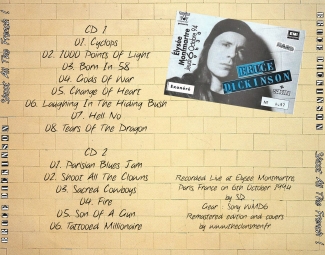 CD 1
01. Cyclops
02. 1000 Points Of Light
03. Born In 58
04. Gods Of War
05. Change Of Heart
06. Laughing In The Hiding Bush
07. Hell No
08. Tears Of The Dragon
CD 2
01. Parisian Blues Jam
02. Shoot All The Clowns
03. Sacred Cowboys
04. Fire
05. Son Of A Gun
06. Tattooed Millionaire
Elysée
Montmartre
Jeudi 6 Octobre 94
EMI
BRUCE
DICKINSON
Exonéré
Recorded Live at Elysee Montmartre
Paris France on 6th October 1994
by SD
Gear : Sony WMD6
Remastered edition and covers
by www.theclansman.fr
Shoot All The French !
BRUCE DICKINSON
BRUCE DICKINSON
Shoot All The French !